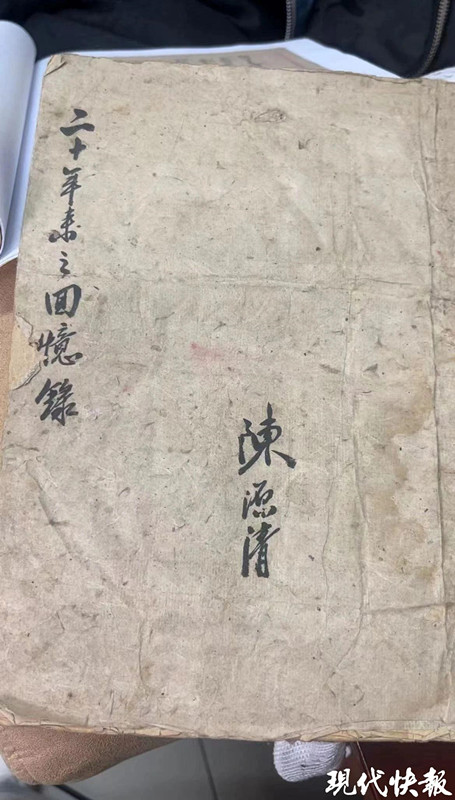 二十年来之回憶錄
陳源清
現代快報